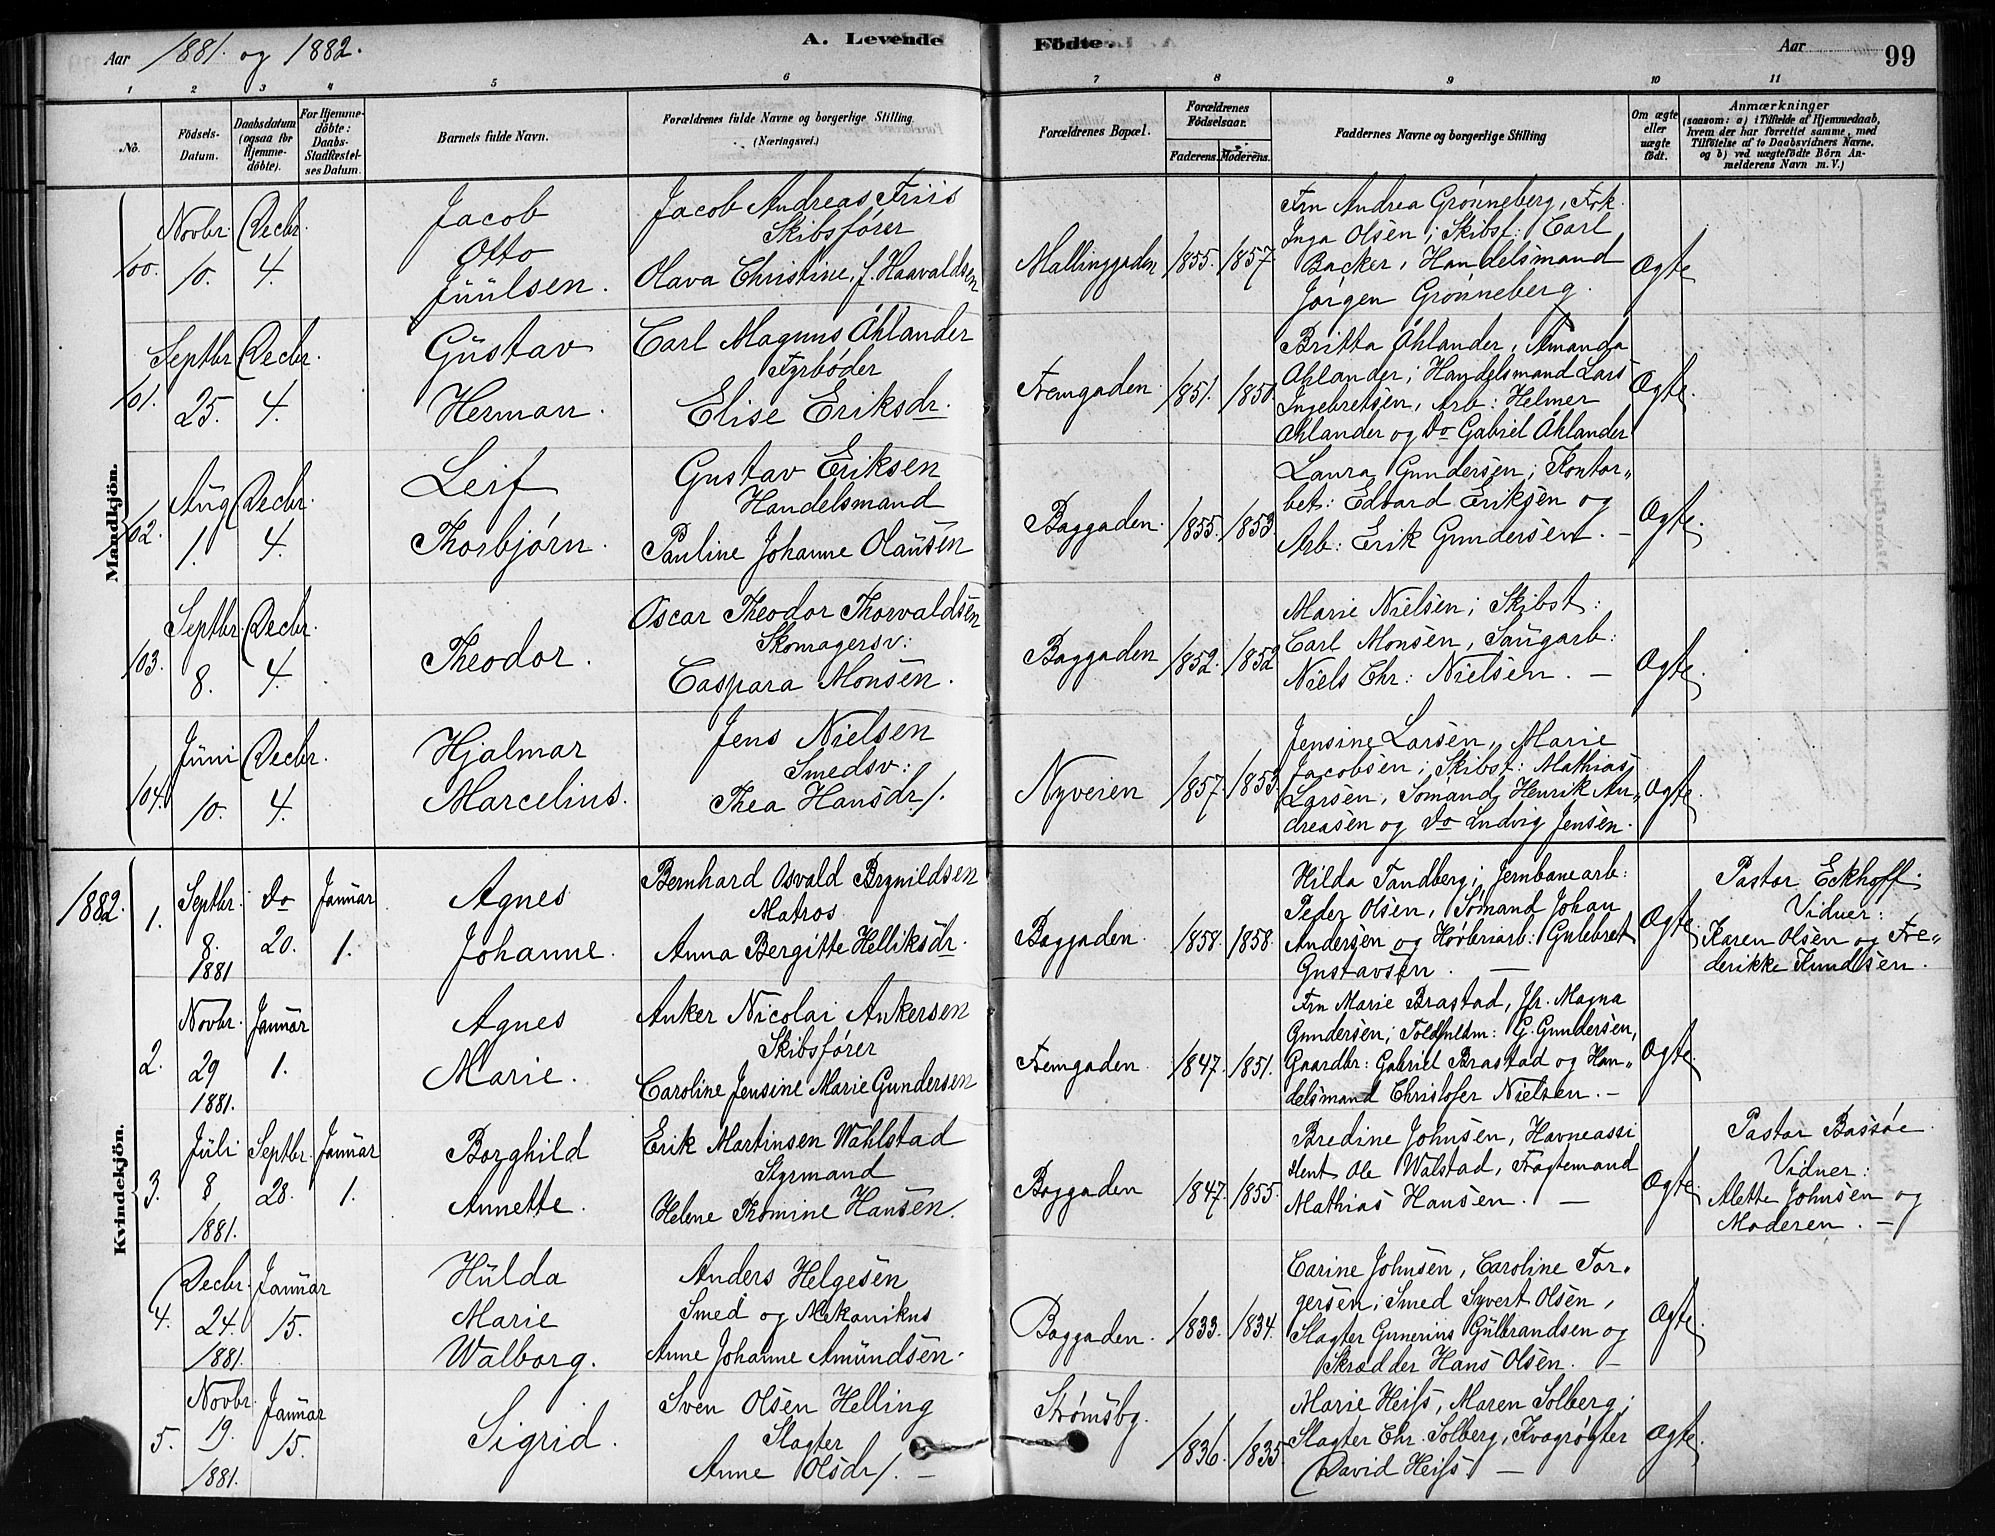 Aar 1881. og 1882.
A. Levende Födte.
Aar
99
1 2 3 4 5 6 7 8 9 10 11
No.
Födsels-Datum.
Daabsdatum (ogsaa for Hjemme-döbte).
For Hjemme-döbte: Daabs-Stadfæstel-ses Datum.
Barnets fulde Navn.
Forældrenes fulde Navne og borgerlige Stilling (Næringsvei.)
Forældrenes Bopæl.
Forældrenes Födselsaar.
Faderens. Moderens.
Faddernes Navne og borgerlige Stilling
Om ægte eller uægte födt.
Anmærkninger
(saasom: a) i Tilfælde af Hjemmedaab, hvem der har forrettet samme, med Tilföielse af to Daabsvidners Navne, og b) ved uægtefödte Börn An-melderens Navn m. V.)
Mandkjön.
100.
Novbr. 10.
Decbr. 4.
Jacob
Otto
Juulsen.
Jacob Andreas Friis
Skibsfører
Olava Christine, f. Haavaldsen
Mallinggaden
1855. 1857
Fru Andrea Grønneberg, Frk.
Inga Olsen; Skibsf: Carl
Backer, Handelsmand
Jørgen Grønneberg.
Ægte
101.
Septbr. 25.
Decbr. 4.
Gustav
Herman.
Carl Magnus Åhlander
Fyrbøder
Elise Eriksdr.
Fremgaden.
1851. 1850.
Britta Åhlander, Amanda
Åhlander; Handelsmand Lars
Ingebretsen, Arb: Helmer
Åhlander og Do Gabriel Åhlander
Ægte.
102.
Aug 1.
Decbr. 4.
Leif
Thorbjørn.
Gustav Eriksen
Handelsmand
Pauline Johanne Olausen
Baggaden.
1855. 1853
Laura Gundersen; Kontor-
bet: Edvard Eriksen og
Arb: Erik Gundersen. —
Ægte.
103.
Septbr. 8.
Decbr. 4.
Theodor.
Oscar Theodor Thorvaldsen
Skomagersv:
Caspara Monsen.
Baggaden
1852. 1852
Marie Nielsen; Skibst:
Carl Monsen, Saugarb:
Niels Chr: Nielsen. —
Ægte.
104.
Juni 10.
Decbr. 4.
Hjalmar
Marcelius.
Jens Nielsen
Smedsv:
Thea Hansdr/.
Nyveien
1857. 1853.
Jensine Larsen, Marie
Jacobsen; Skibst: Mathias
Larsen, Sømand Henrik An-
dreasen og Do Ludvig Jensen.
Ægte.
1882.
Kvindekjön.
1.
Septbr. 8. 1881
Do 20.
Januar 1.
Agnes
Johanne.
Bernhard Osvald Brynildsen
Matros
Anna Bergitte Helliksdr.
Baggaden.
1858. 1858.
Hilda Tandberg; Jernbanearb:
Peder Olsen, Sømand Johan
Andersen og Høvleriarb: Gulebret
Gustavsen. —
Ægte.
Pastor Eckhoff.
Vidner:
Karen Olsen og Fre-
derikke Knudsen.
2.
Novbr. 29 1881.
Januar 1.
Agnes
Marie.
Anker Nicolai Ankersen
Skibsfører
Caroline Jensine Marie Gundersen
Fremgaden.
1847. 1851.
Fru Marie Brastad, Jfr. Magna
Gundersen; Toldfuldm: G. Gundersen,
Gaardbr: Gabriel Brastad og Han-
delsmand Christofer Nielsen. —
Ægte.
3.
Juli 8 1881.
Septbr. 28.
Januar 1.
Borghild
Annette.
Erik Martinsen Wahlstad
Styrmand
Helene Tromine Hansen.
Baggaden
1847. 1855.
Bredine Johnsen, Havneassi
stent Ole Walstad, Fragtemand
Mathias Hansen. —
Ægte.
Pastor Bassøe.
Vidner:
Alette Johnsen og
Moderen. —
4.
Decbr. 24. 1881.
Januar 15.
Hulda
Marie
Walborg.
Anders Helgesen
Smed og Mekanikus
Anne Johanne Amundsen.
Baggaden.
1833. 1834.
Carine Johnsen, Caroline Tor-
gersen; Smed Syvert Olsen,
Slagter Gunerius Gulbrandsen og
Skrædder Hans Olsen. —
Ægte.
5.
Novbr. 19. 1881.
Januar 15.
Sigrid.
Sven Olsen Helling
Slagter
Anne Olsdr/. —
Strømsbg.
1836. 1835
Marie Heiss, Maren Solberg;
Slagter Chr. Solberg, Kvagrøgter
David Heiss. —
Ægte.